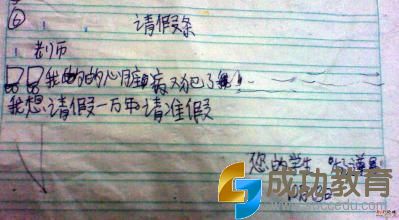 ⑥ 请假条
老师
我的的心脏病又犯了
我想请假一万年请准假
您的学生
成功教育